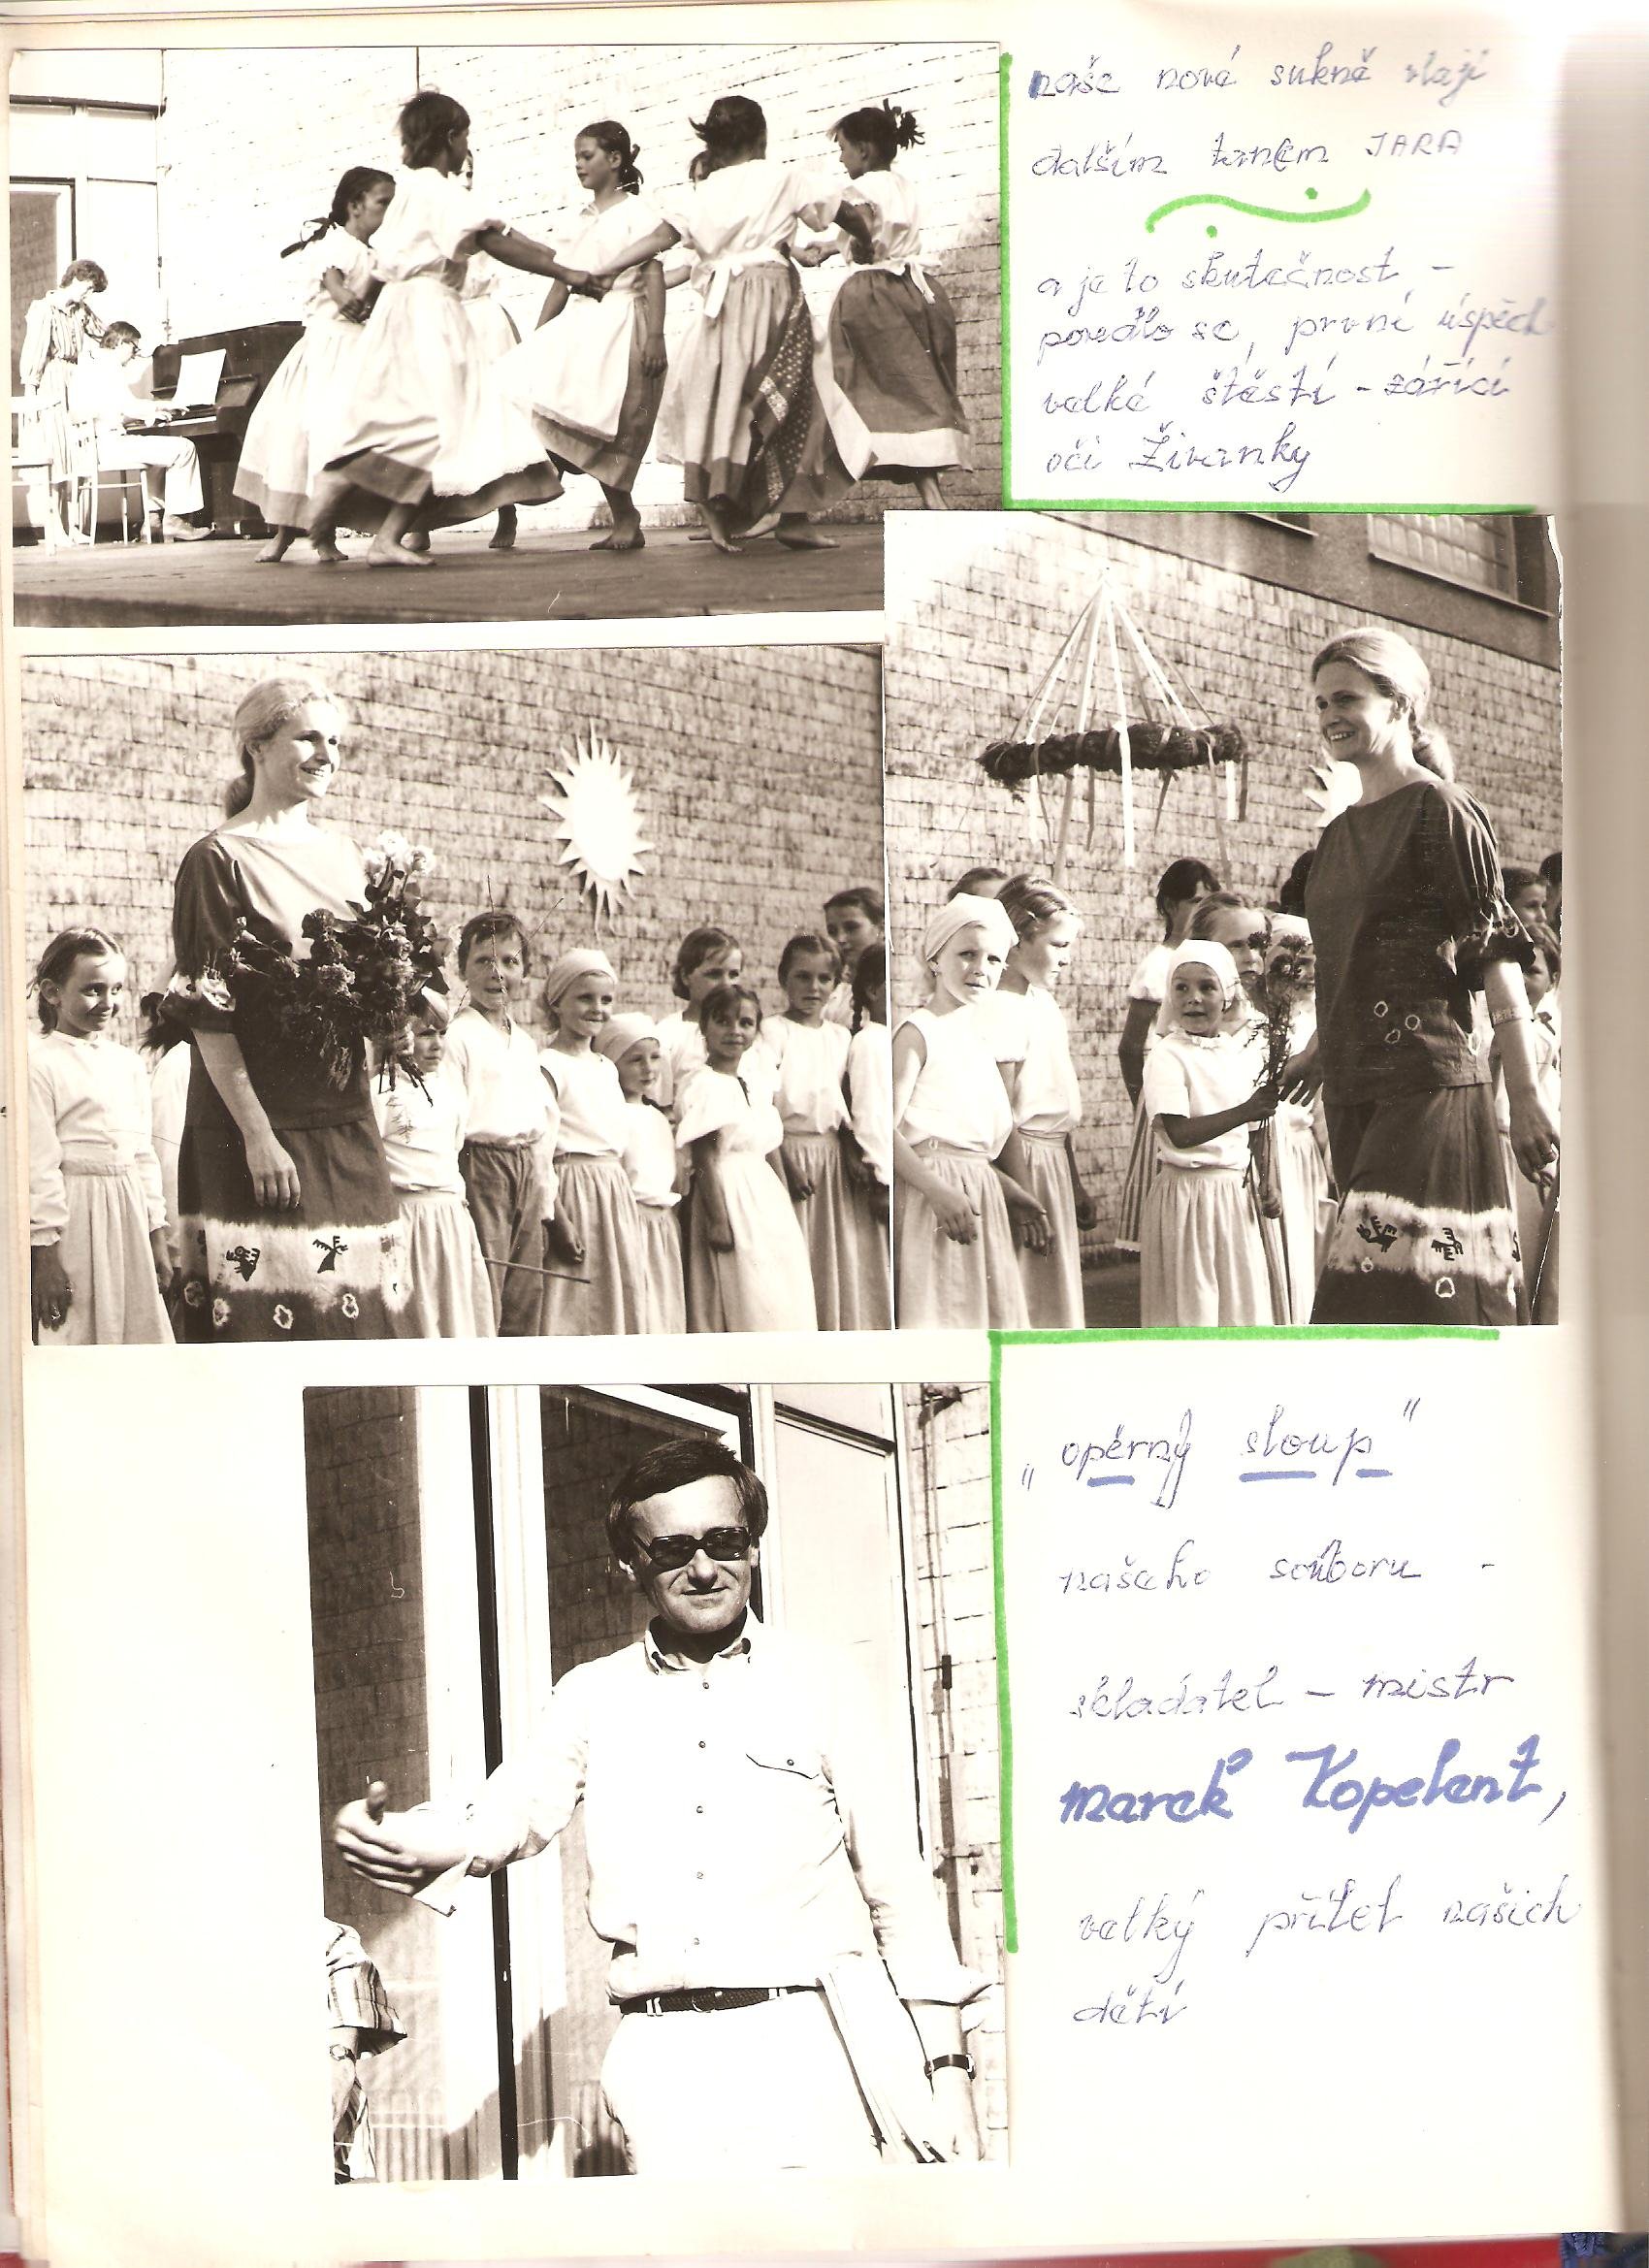 naše nové sukně vlají
dalším tancem JARA
a je to skutečnost -
povedlo se, první úspěch
velké štěstí - zářící
oči Živanky
„opěrný sloup"
našeho souboru -
skladatel - mistr
Marek Kopelent,
velký přítel našich
dětí